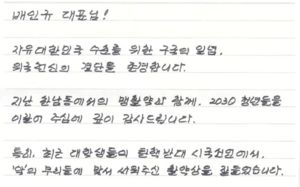 배인규 대표님!
자유대한민국 수호를 위한 구국의 일념,
애국전심의 결단을 존경합니다.
지난 한남동에서의 맹활약과 함께, 2030 청년들을
이끌어 주심에 깊이 감사드립니다.
특히, 최근 대학생들의 탄핵반대 시국선언에서,
'악'의 무리들에 맞서 싸워주신 활약상을 잘 들었습니다.